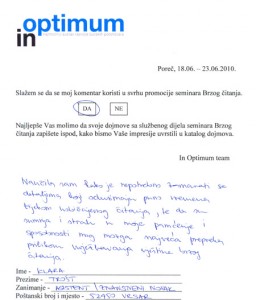 in optimum
Poreč, 18.06. – 23.06.2010.
Slažem se da se moj komentar koristi u svrhu promocije seminara Brzog čitanja.
DA NE
Najljepše Vas molimo da svoje dojmove sa službenog dijela seminara Brzog
čitanja zapišete ispod, kako bismo Vaše impresije uvrstili u katalog dojmova.
In Optimum team
Naučila sam kako je nepotrebno zamarati se
detaljima koji oduzimaju puno vremena
tijekom uobičajenog čitanja, te da su
sumnja i strah u moje pamćenje i
sposobnosti mog mozga najveća prepreka
prilikom uvježbavanja vještine brzog
čitanja.
Ime - KLARA
Prezime - TROŠT
Zanimanje - ASISTENT / ZNANSTVENI NOVAK
Poštanski broj i mjesto - 52450 VRSAR